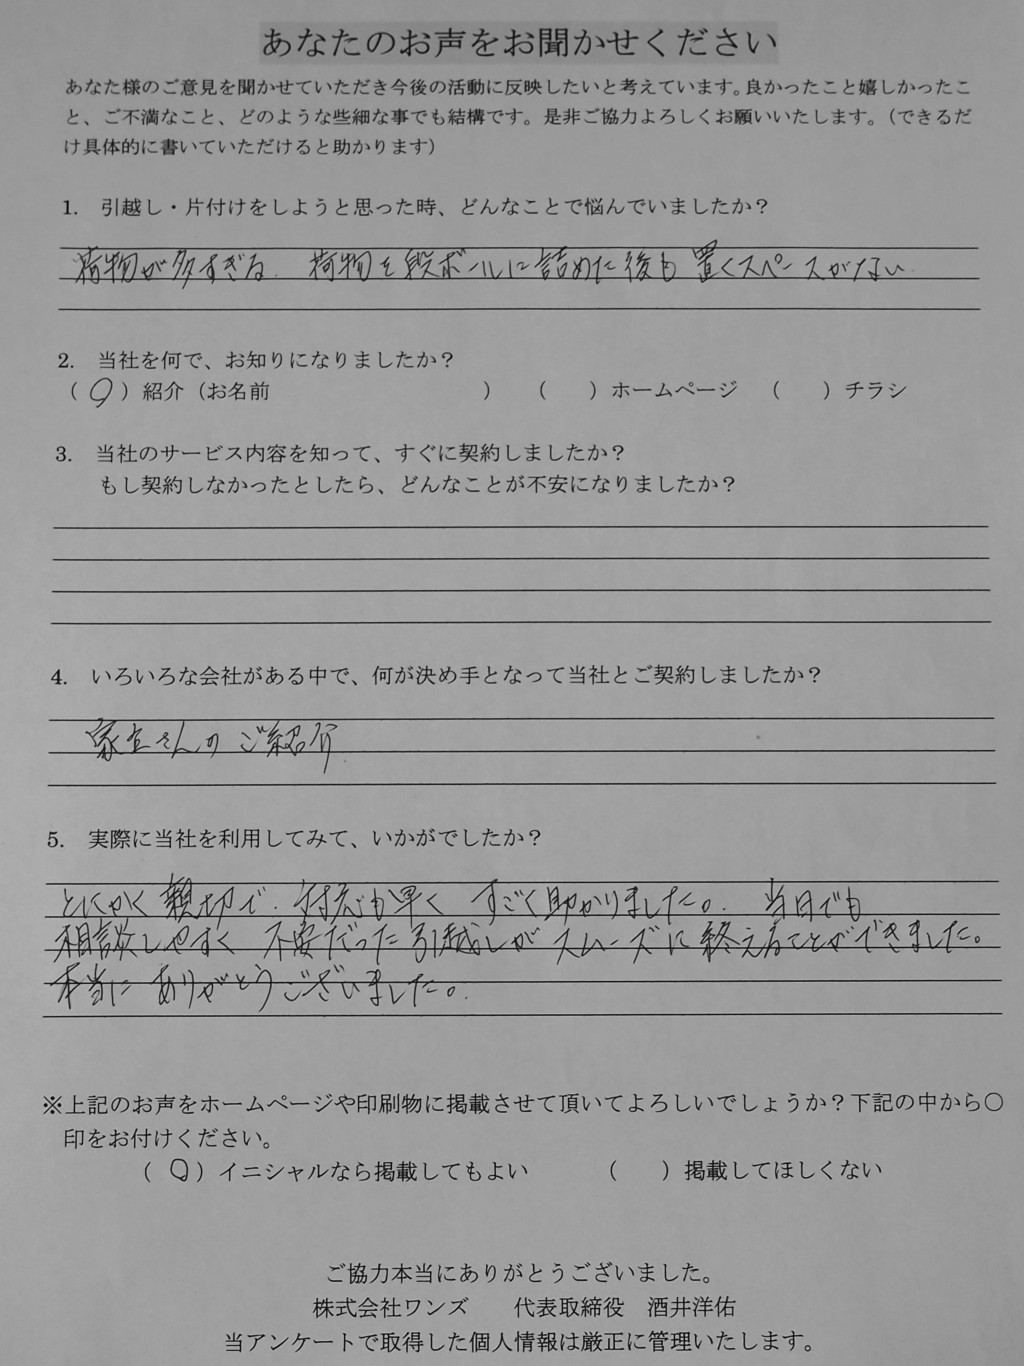 あなたのお声をお聞かせください
あなた様のご意見を聞かせていただき今後の活動に反映したいと考えています。良かったこと嬉しかったこ
と、ご不満なこと、どのような些細な事でも結構です。是非ご協力よろしくお願いいたします。（できるだ
け具体的に書いていただけると助かります）
1.　引越し・片付けをしようと思った時、どんなことで悩んでいましたか？
荷物が多すぎる、荷物を段ボールに詰めた後も置くスペースがない
2.　当社を何で、お知りになりましたか？
（ ○ ）紹介（お名前　　　　　　　　　　）　（　　）ホームページ　（　　）チラシ
3.　当社のサービス内容を知って、すぐに契約しましたか？
もし契約しなかったとしたら、どんなことが不安になりましたか？
4.　いろいろな会社がある中で、何が決め手となって当社とご契約しましたか？
家主さんのご紹介
5.　実際に当社を利用してみて、いかがでしたか？
とにかく親切で、対応も早く すごく助かりました。 当日でも
相談しやすく 不安だった引越しがスムーズに終えることができました。
本当に ありがとうございました。
※上記のお声をホームページや印刷物に掲載させて頂いてよろしいでしょうか？下記の中から〇
印をお付けください。
（ ○ ）イニシャルなら掲載してもよい　　　（　　）掲載してほしくない
ご協力本当にありがとうございました。
株式会社ワンズ　　代表取締役　酒井洋佑
当アンケートで取得した個人情報は厳正に管理いたします。